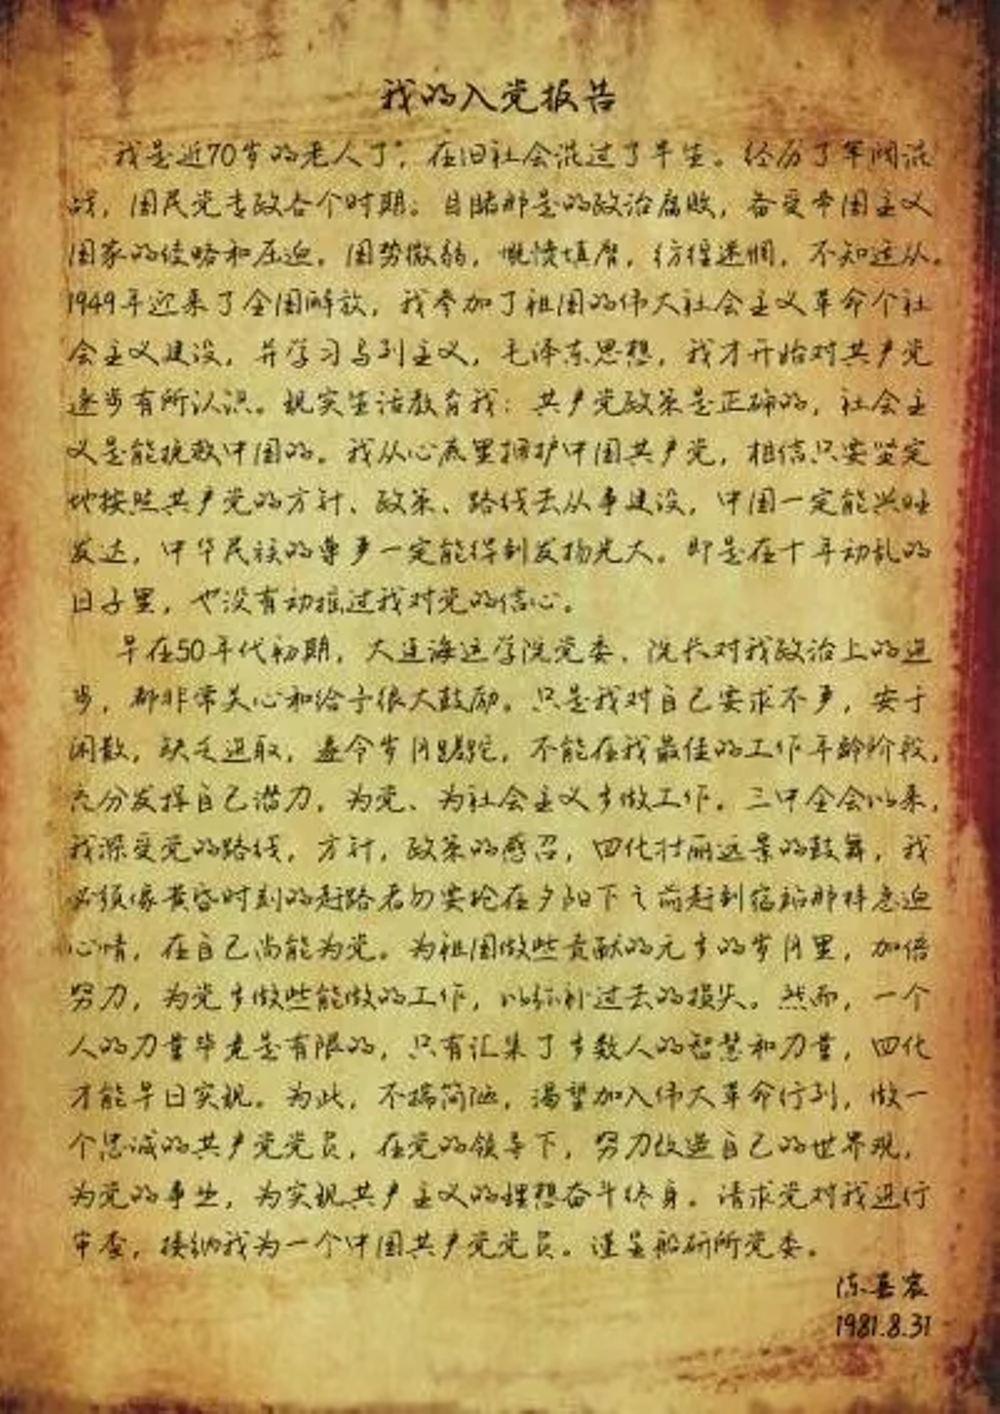 我的入党报告
我是近70岁的老人了，在旧社会混过了半生。经历了军阀混
战，国民党专政各个时期。目睹那是的政治腐败，备受帝国主义
国家的侵略和压迫。国势微弱，慨愤填膺，彷徨迷惘，不知适从。
1949年迎来了全国解放，我参加了祖国的伟大社会主义革命个社
会主义建设，并学习马列主义，毛泽东思想，我才开始对共产党
逐步有所认识。现实生活教育我：共产党政策是正确的，社会主
义是能挽救中国的。我从心底里拥护中国共产党，相信只要坚定
地按照共产党的方针、政策、路线去从事建设，中国一定能兴旺
发达，中华民族的尊严一定能得到发扬光大。即是在十年动乱的
日子里，也没有动摇过我对党的信心。
早在50年代初期，大连海运学院党委、院长对我政治上的进
步，都非常关心和给予很大鼓励。只是我对自己要求不严，安于
闲散，缺乏进取，遂令岁月蹉跎，不能在我最佳的工作年龄阶段，
充分发挥自己潜力，为党、为社会主义多做工作。三中全会以来，
我深受党的路线，方针，政策的感召，四化壮丽远景的鼓舞，我
必须像黄昏时刻的赶路者勿要抢在夕阳下之前赶到宿站那样急迫
心情，在自己尚能为党。为祖国做些贡献的无多的岁月里，加倍
努力，为党多做些能做的工作，以弥补过去的损失。然而，一个
人的力量毕竟是有限的，只有汇集了多数人的智慧和力量，四化
才能早日实现。为此，不揣简陋，渴望加入伟大革命行列，做一
个忠诚的共产党党员，在党的领导下，努力改造自己的世界观，
为党的事业，为实现共产主义的理想奋斗终身。请求党对我进行
审查，接纳我为一个中国共产党党员。谨呈船研所党委。
陈嘉震
1981.8.31